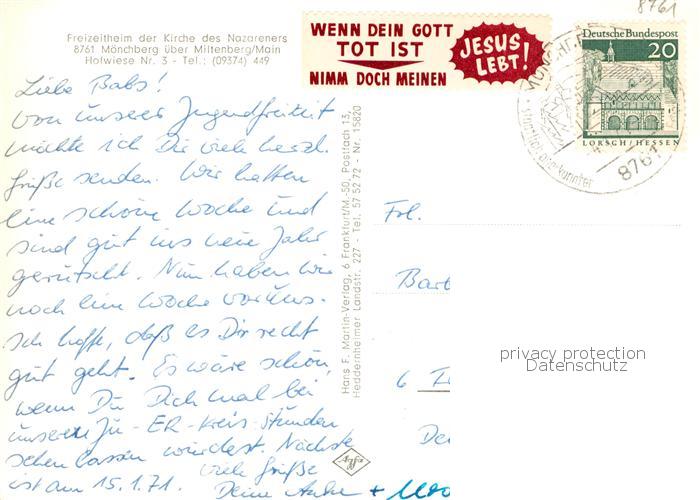 8761
Freizeitheim der Kirche des Nazareners
8761 Mönchberg über Miltenberg/Main
Hofwiese Nr. 3 - Tel.: (09374) 449
WENN DEIN GOTT
TOT IST
NIMM DOCH MEINEN
JESUS
LEBT!
Deutsche Bundespost
20
LORSCH/HESSEN
8761
Liebe Babs!
Von unserer Jugendfreizeit
möchte ich Dir viele herzl.
Grüße senden. Wir hatten
eine schöne Woche und
sind gut ins neue Jahr
gerutscht. Nun haben wir
noch eine Woche vor uns.
Ich hoffe, daß es Dir recht
gut geht. Es wäre schön,
wenn Du Dich mal bei
unseren Ju-ER-Kreis-Stunden
sehen lassen würdest. Nächste
ist am 15.1.71. Viele Grüße
Deine Anke +
Hans F. Martin-Verlag, 6 Frankfurt/M.-50, Postfach 13,
Heddernheimer Landstr. 227 - Tel. 57 52 72 - Nr. 15820
Frl.
Barb
6
privacy protection
Datenschutz